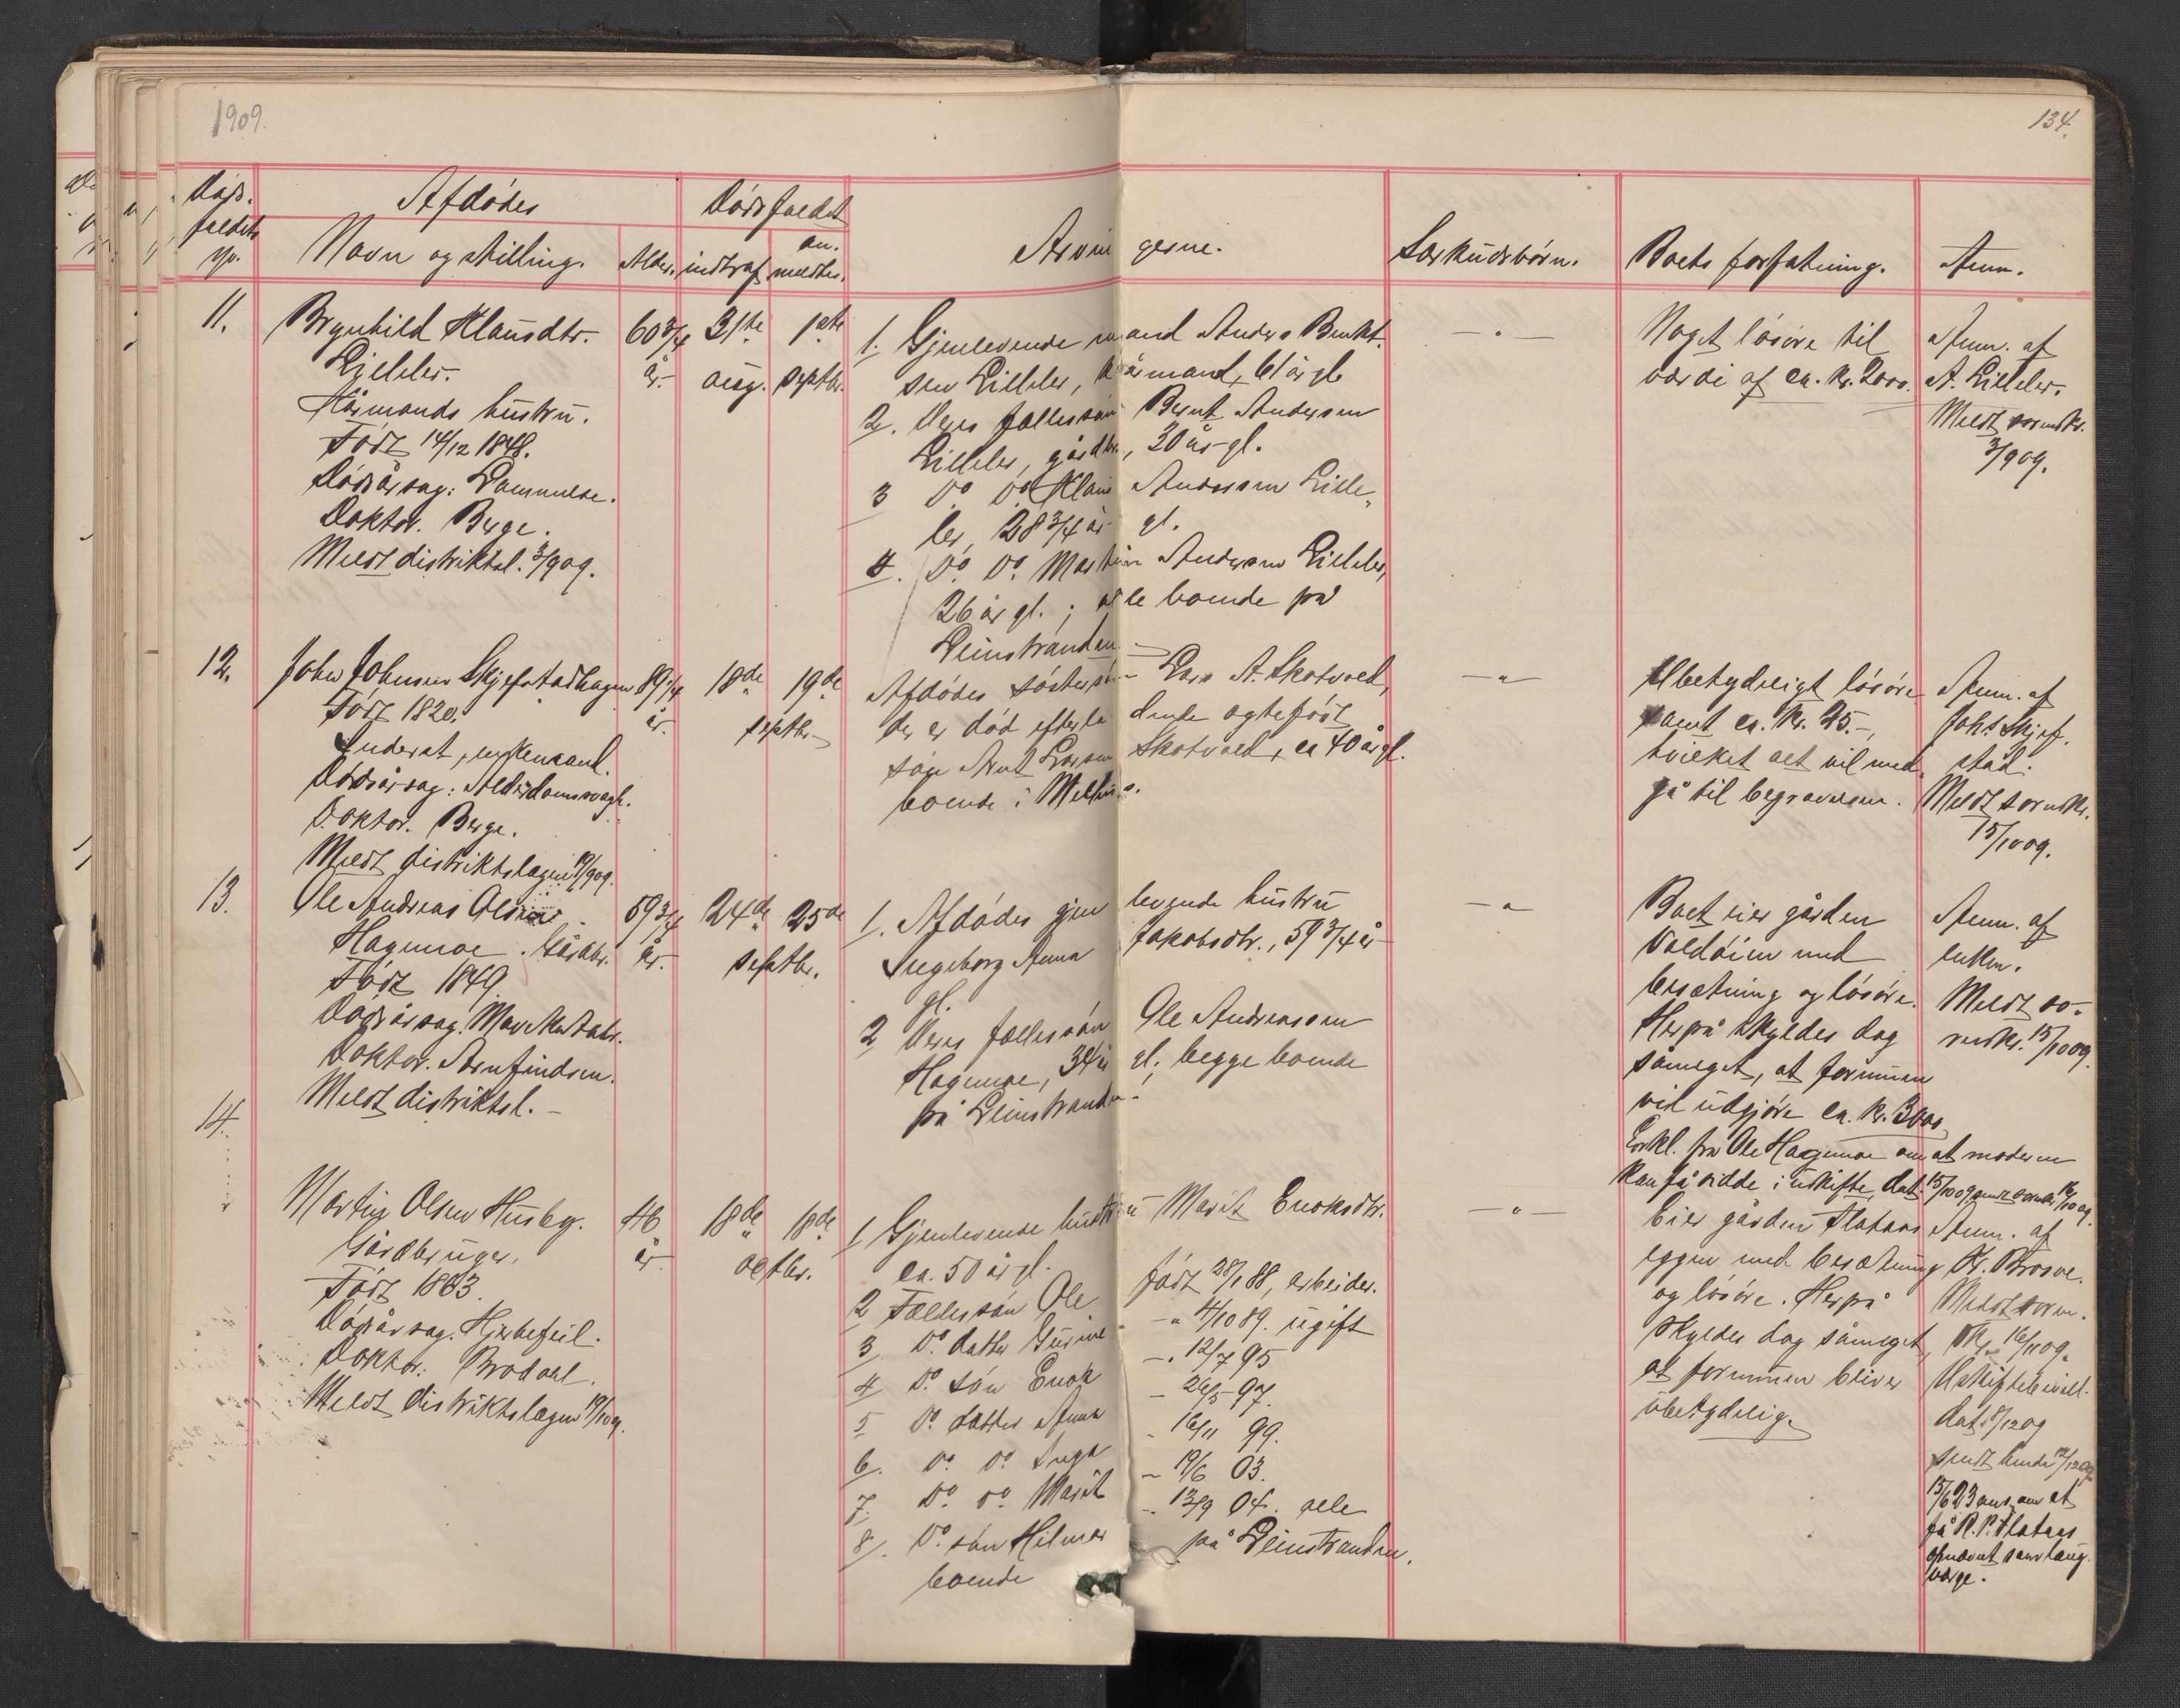 1909.
134.
Døds-
faldets
No.
Afdødes
Navn og stilling.
Alder.
Dødsfaldet
indtraf
an-
meldtes.
Arvingerne.
Særkudsbørn.
Boets forfatning.
Anm.
11.
Brynhild Klausdtr.
Lilleler.
Kårmands hustru.
Født 14/12 1848.
Dødsårsag:
Doktor. Berge.
Meldt distriktsl. 3/9 09.
60 3/4
år.
31te
aug.
1ste
septbr.
1. Gjenlevende mand Anders Benkt-
sen Lilleler, kårmand, 61 år gl.
2. Deres fællessøn Bernt Andersen
Lilleler, gårdbr., 30 år gl.
3 Do. Do. Klaus Andersen Lille-
ler, 28 3/4 år gl.
4. Do. Do. Martin Andersen Lilleler,
26 år gl.; alle boende på
Leinstranden.
Noget løsøre til
værdi af ca. kr. 2000.
Anm. af
A. Lilleler.
Meldt sorenskr.
3/9 09.
12.
John Johnsen Skjefstadhagen
Født 1820.
Inderst, enkemand.
Dødsårsag: Alderdomssvagh.
Doktor. Berge.
Meldt distriktslægen 19/9 09.
89 1/4
år.
18de
19de
septbr.
Afdødes søstersøn Lars A. Skotvold,
der er død efterladende ægtefødt
søn Arnt Larsen Skotvold, ca 40 år gl.
boende i Melhus.
Ubetydeligt løsøre
samt ca. kr. 25.-,
hvilket alt vil med-
gå til begravelsen.
Anm. af
Johs. Skjef-
stad.
Meldt sorenskr.
15/10 09.
13.
Ole Andreas Olsen
Hagemoe. Gårdbr.
Født 1849.
Dødsårsag. Mavekatarr.
Doktor. Arnfindsen.
Meldt distriktsl. -
59 3/4
år.
24de
25de
septbr.
1. Afdødes gjenlevende hustru
Ingeborg Anna Jakobsdtr., 59 3/4 år
gl.
2 Deres fællessøn Ole Andreassen
Hagemoe, 34 år gl., begge boende
på Leinstranden.
Boet eier gården
Voldøien med
besætning og løsøre.
Herpå skyldes dog
såmeget, at formuen
vil udgjøre ca. kr. 3000
Erkl. fra Ole Hagemoe om at moderen
kan få sidde i uskifte, dat. 15/10 09 sendt sorenskr. 16/10 09.
Anm. af
enken.
Meldt so-
renskr. 15/10 09.
14.
Martin Olsen Husby.
Gårdbruger.
Født 1863.
Dødsårsag. Hjertefeil.
Doktor. Brodahl.
Meldt distriktslægen 19/10 09.
46
år
18de
18de
octbr.
1 Gjenlevende hustru Marit Enoksdtr.
ca. 50 år gl.
2 Fællessøn Ole født 28/1 88, arbeider.
3 Do. datter Gurine -"- 4/10 89. ugift
4 Do. søn Enok -"- 12/7 95
5 Do. datter Anna - 26/5 97.
6. Do. Do. Inga - 16/11 99.
7. Do. Do. Marit - 19/6 03.
8. Do. søn Hilmar - 13/9 04. alle
boende på Leinstranden.
Eier gården Flataas-
eggen med besætning
og løsøre. Herpå
skyldes dog såmeget,
at formuen bliver
ubetydelig.
Anm. af
Meldt soren-
skr. 16/11 09.
Uskiftebevill.
dat. 8/12 09
sendt hende 12/12 09
15/6 23 ans. om at
få R. P. Flataas
opnævnt som laug-
værge.